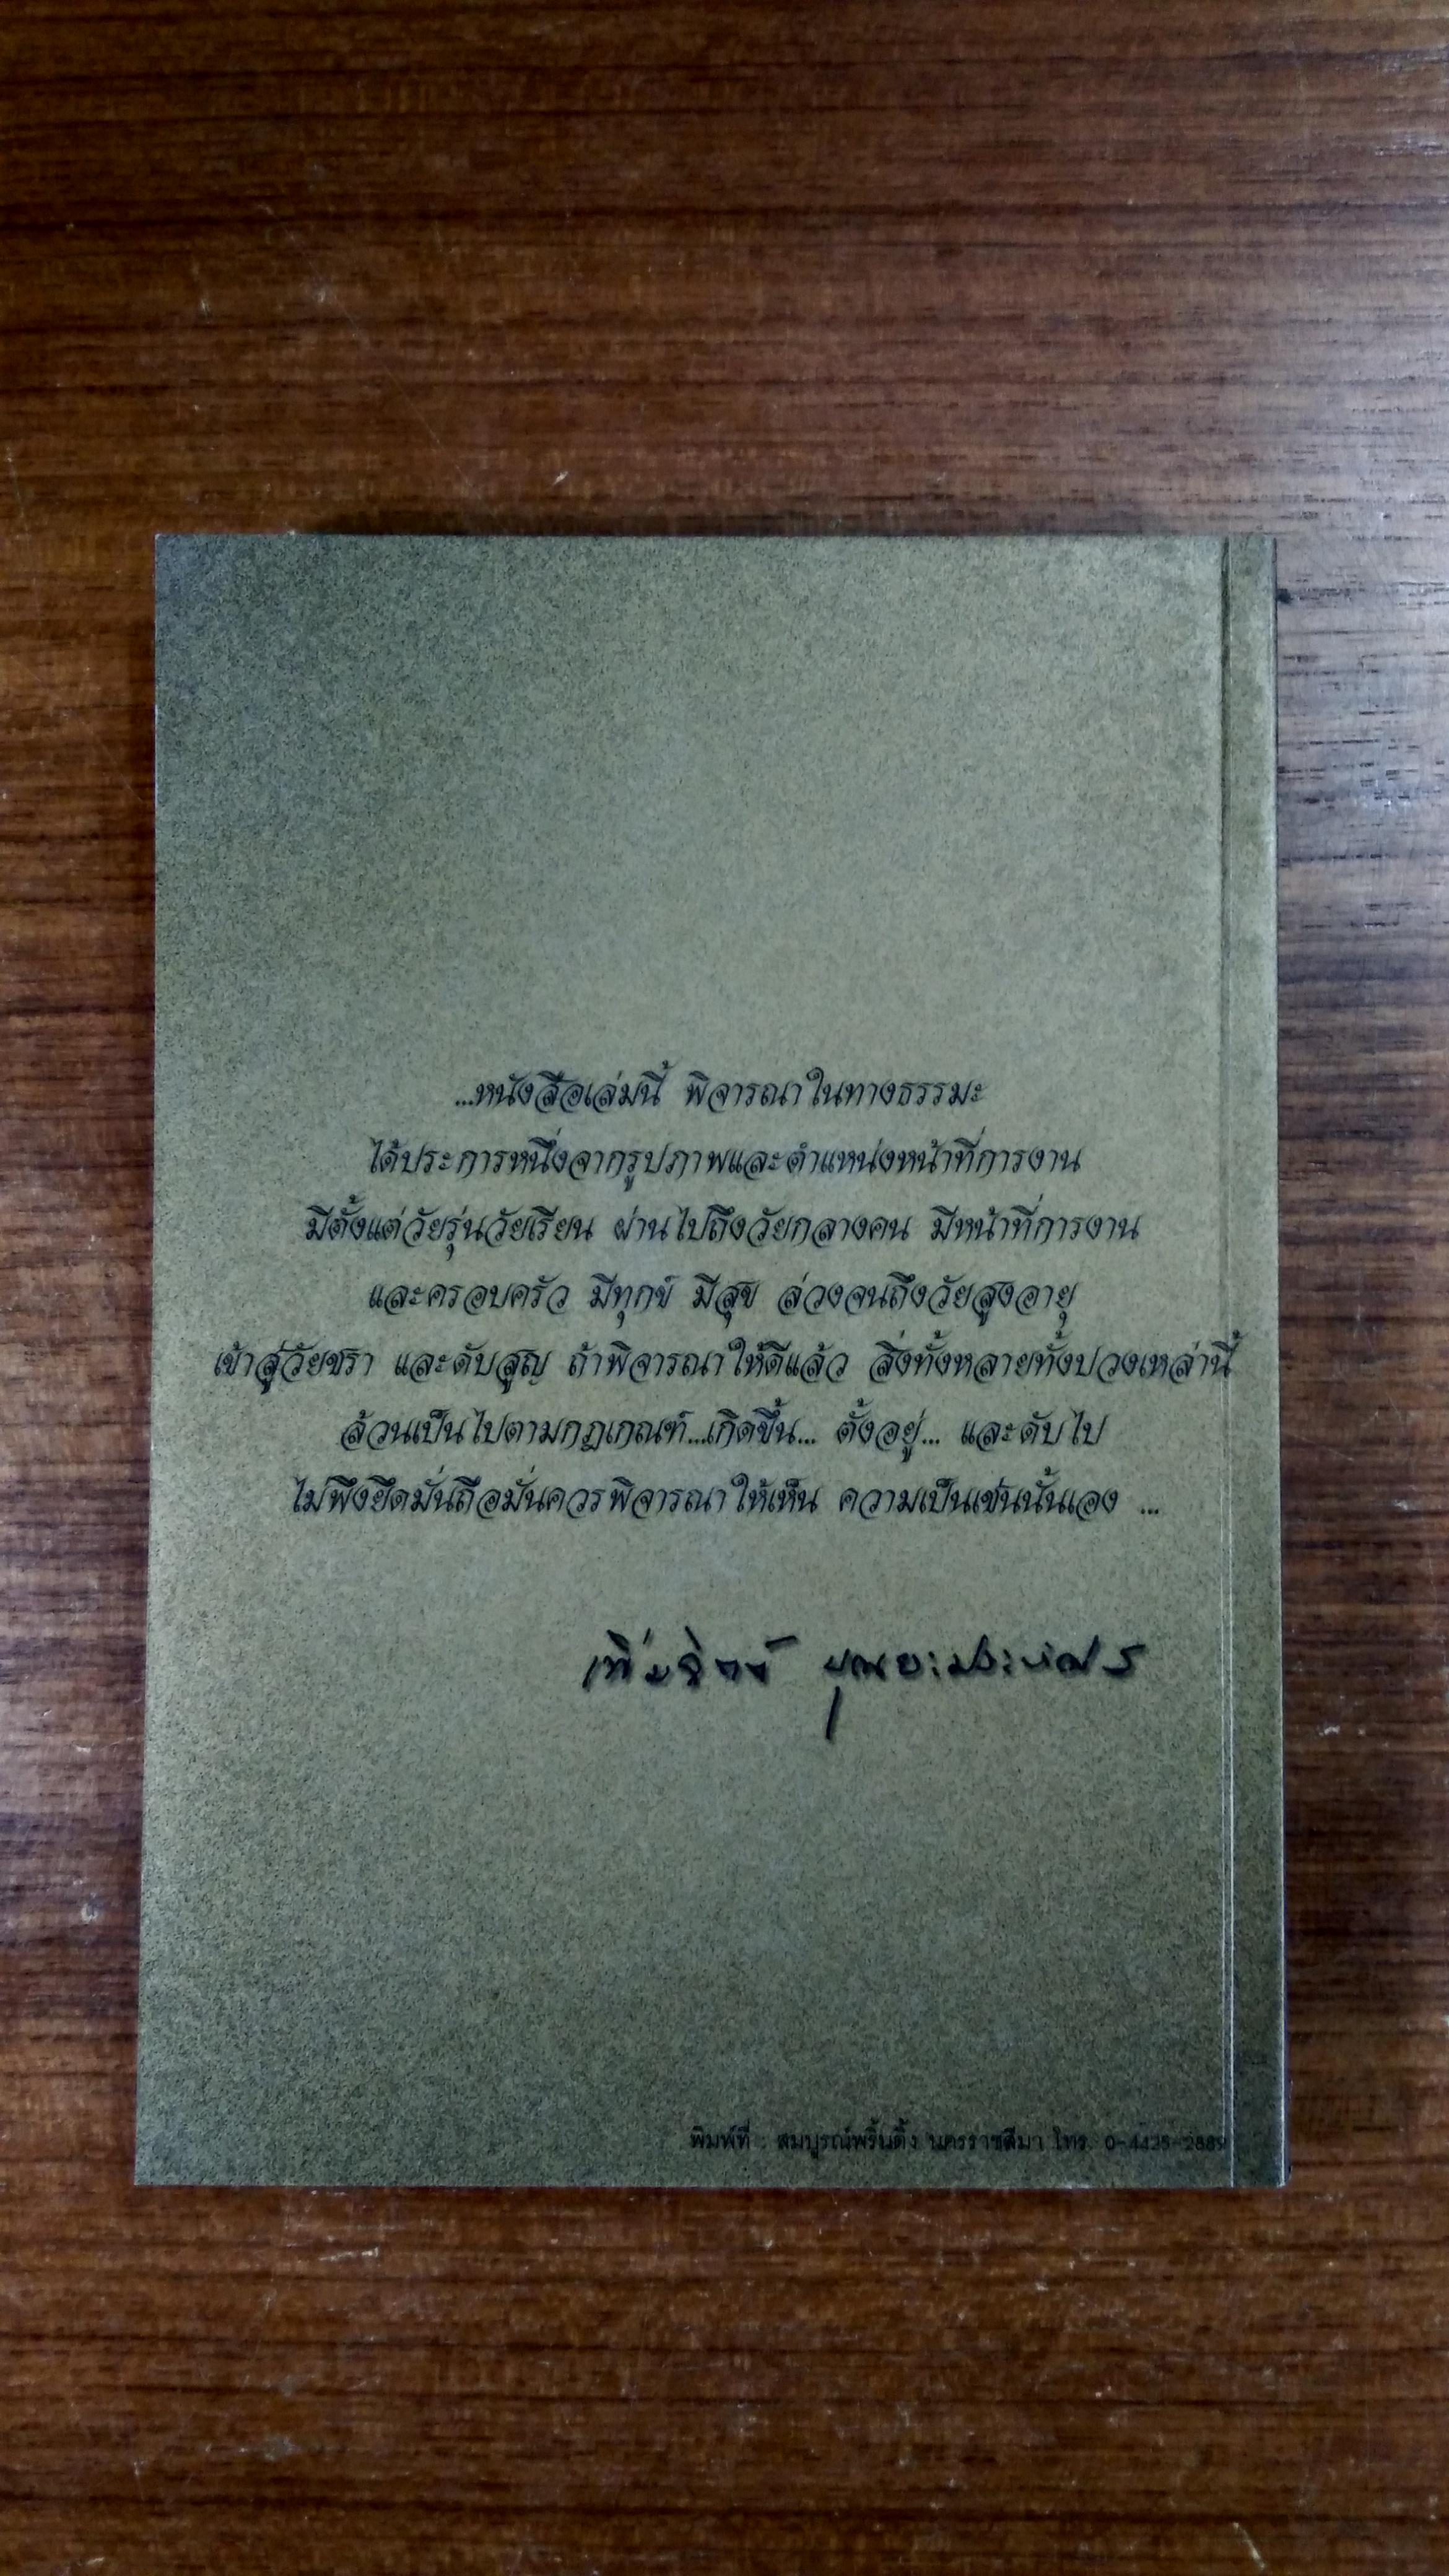 ...หนังสือเล่มนี้ พิจารณาในทางธรรมะ
ได้ประการหนึ่งจากรูปภาพและตำแหน่งหน้าที่การงาน
มีตั้งแต่วัยรุ่นวัยเรียน ผ่านไปถึงวัยกลางคน มีหน้าที่การงาน
และครอบครัว มีทุกข์ มีสุข ล่วงจนถึงวัยสูงอายุ
เข้าสู่วัยชรา และดับสูญ ถ้าพิจารณาให้ดีแล้ว สิ่งทั้งหลายทั้งปวงเหล่านี้
ล้วนเป็นไปตามกฏเกณฑ์...เกิดขึ้น... ตั้งอยู่... และดับไป
ไม่พึงยึดมั่นถือมั่นควรพิจารณาให้เห็น ความเป็นเช่นนั้นเอง ...
พิมพ์ที่ : สมบูรณ์พริ้นติ้ง นครราชสีมา โทร.